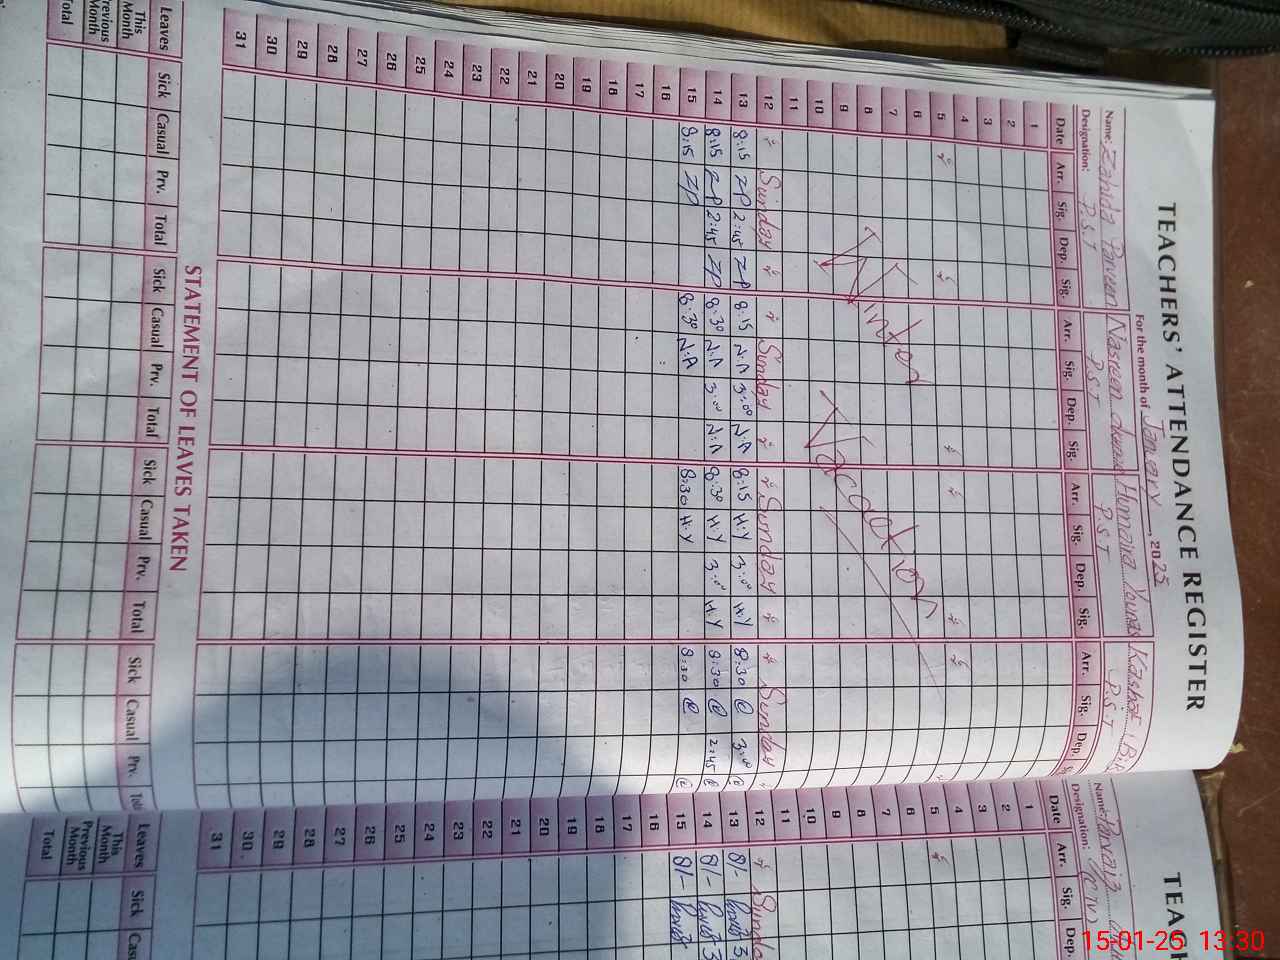 TEACHERS' ATTENDANCE REGISTER
For the month of January, 2025
Name: Zahida Parveen Nasreen Humaira Younas Kashaf Bi
Designation: P.S.T P.S.T P.S.T P.S.T
Date Arr. Sig. Dep. Sig. Arr. Sig. Dep. Sig. Arr. Sig. Dep. Sig. Arr. Sig. Dep. S
1
2
3
4
5
6
7
8
9
10
11
Winter Vacation
12 Sunday Sunday Sunday Sunday
13 8:15 ZP 2:45 ZP 8:15 N.A 3:00 N.A 8:15 H.Y 3:00 H.Y 8:30 3:00
14 8:15 ZP 2:45 ZP 8:30 N.A 3:00 N.A 8:30 H.Y 3:00 H.Y 8:30 2:45
15 8:15 ZP 8:30 N.A 8:30 H.Y 8:30
16
17
18
19
20
21
22
23
24
25
26
27
28
29
30
31
STATEMENT OF LEAVES TAKEN
Leaves Sick Casual Prv. Total Sick Casual Prv. Total Sick Casual Prv. Total Sick Casual Prv. Tota
This Month
Previous Month
Total
TEAC
Name: Parvaiz
Designation:
Date Arr. Sig. Dep.
1
2
3
4
5
6
7
8
9
10
11
12 Sunda
13 8/- 3
14 8/- 3
15 8/-
16
17
18
19
20
21
22
23
24
25
26
27
28
29
30
31
Leaves Sick Ca
This Month
Previous Month
Total
15-01-25 13:30